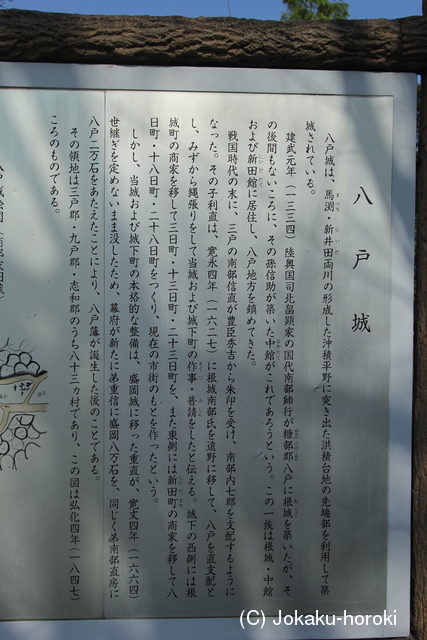 八戸城
八戸城は、馬渕・新井田両川の形成した沖積平野に突き出た洪積台地の先端部を利用して築
城されている。
建武元年(一三三四)陸奥国司北畠顕家の国代南部師行が糠部郡八戸に根城を築いたが、そ
の後間もないころに、その孫信助が築いた中館がこれであろうという。この一族は根城・中館
および新田館に居住し、八戸地方を鎮めてきた。
戦国時代の末に、三戸の南部信直が豊臣秀吉から朱印を受け、南部内七郡を支配するように
なった。その子利直は、寛永四年(一六二七)に根城南部氏を遠野に移して、八戸を直支配と
し、みずから縄張りをして当城および城下町の作事・普請をしたと伝える。城下の西側には根
城町の商家を移して三日町・十三日町・二十三日町を、また東側には新田町の商家を移して八
日町・十八日町・二十八日町をつくり、現在の市街のもとを作ったという。
しかし、当城および城下町の本格的な整備は、盛岡城に移った重直が、寛文四年(一六六四)
世継ぎを定めないまま没したため、幕府が新たに弟重信に盛岡八万石を、同じく弟南部直房に
八戸二万石をあたえたことにより、八戸藩が誕生した後のことである。
その領地は三戸郡・九戸郡・志和郡のうち八十三ヵ村であり、この図は弘化四年(一八四七)
ころのものである。
(C) Jokaku-horoki